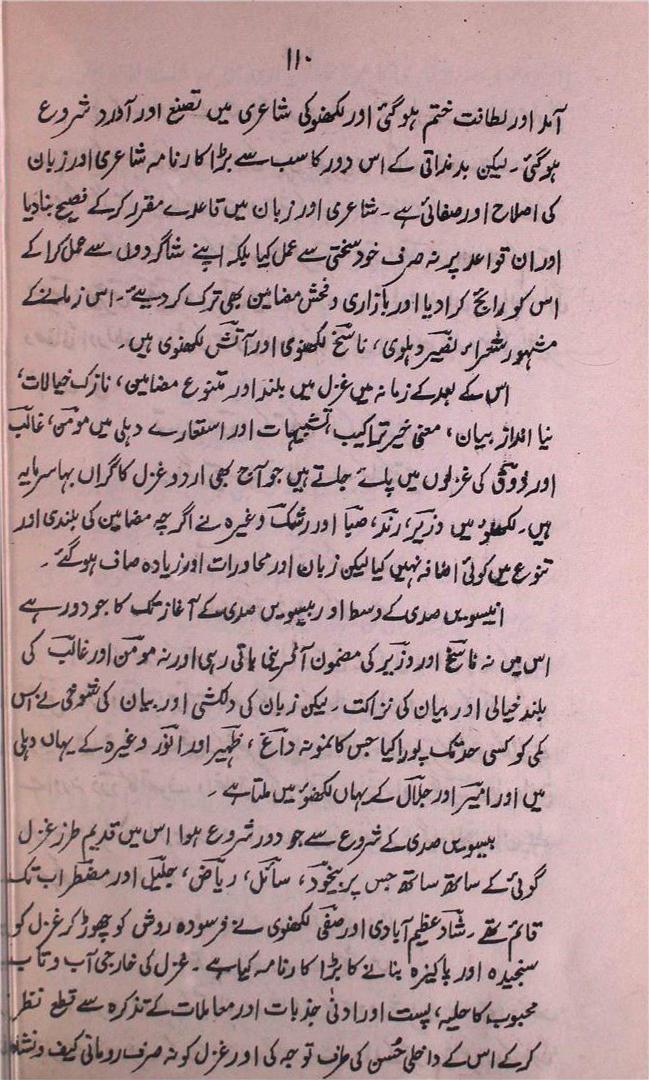 ۱۱۰
آمد اور لطافت ختم ہوگئی اور لکھنؤ کی شاعری میں تصنع اور آورد شروع
ہوگئی۔ لیکن بدمذاقی کے اس دور کا سب سے بڑا کارنامہ شاعری اور زبان
کی اصلاح اور صفائی ہے۔ شاعری اور زبان میں قاعدے مقرر کرکے فصیح بنادیا
اور ان قواعد پر نہ صرف خود سختی سے عمل کیا بلکہ اپنے شاگردوں سے عمل کرا کے
اس کو رائج کرادیا اور بازاری و فحش مضامین بھی ترک کردیے۔ اس زمانے کے
مشہور شعراء نصیر دہلوی، ناسخ لکھنوی اور آتش لکھنوی ہیں۔
اس کے بعد کے زمانہ میں غزل میں بلند اور متنوع مضامین، نازک خیالات،
نیا انداز بیان، معنی خیز تراکیب، تشبیہات اور استعارے دہلی میں مومن، غالب
اور ذوق کی غزلوں میں پائے جاتے ہیں جو آج بھی اردو غزل کا گراں بہا سرمایہ
ہیں۔ لکھنؤ میں وزیر، رند، صبا اور رشک وغیرہ نے اگرچہ مضامین کی بلندی اور
تنوع میں کوئی اضافہ نہیں کیا لیکن زبان اور محاورات اور زیادہ صاف ہوگئے۔
انیسویں صدی کے وسط اور بیسویں صدی کے آغاز تک کا جو دور ہے
اس میں نہ ناسخ اور وزیر کی مضمون آفرینی باقی رہی اور نہ مومن اور غالب کی
بلند خیالی اور بیان کی نزاکت۔ لیکن زبان کی دلکشی اور بیان کی شوخی نے اس
کمی کو کسی حد تک پورا کیا جس کا نمونہ داغ، ظہیر اور انور وغیرہ کے یہاں دہلی
میں اور امیر اور جلال کے یہاں لکھنؤ میں ملتا ہے۔
بیسویں صدی کے شروع سے جو دور شروع ہوا اس میں قدیم طرز غزل
گوئی کے ساتھ ساتھ جس پر بیخود، سائل، ریاض، جلیل اور مضطر اب تک
قائم تھے۔ شاد عظیم آبادی اور صفی لکھنوی نے فرسودہ روش کو چھوڑ کر غزل کو
سنجیدہ اور پاکیزہ بنانے کا بڑا کارنامہ کیا ہے۔ غزل کی خارجی آب و تاب
محبوب کا حلیہ، پست اور ادنیٰ جذبات اور معاملات کے تذکرہ سے قطع نظر
کرکے اس کے داخلی حُسن کی طرف توجہ کی اور غزل کو نہ صرف رومانی کیف و نشاط